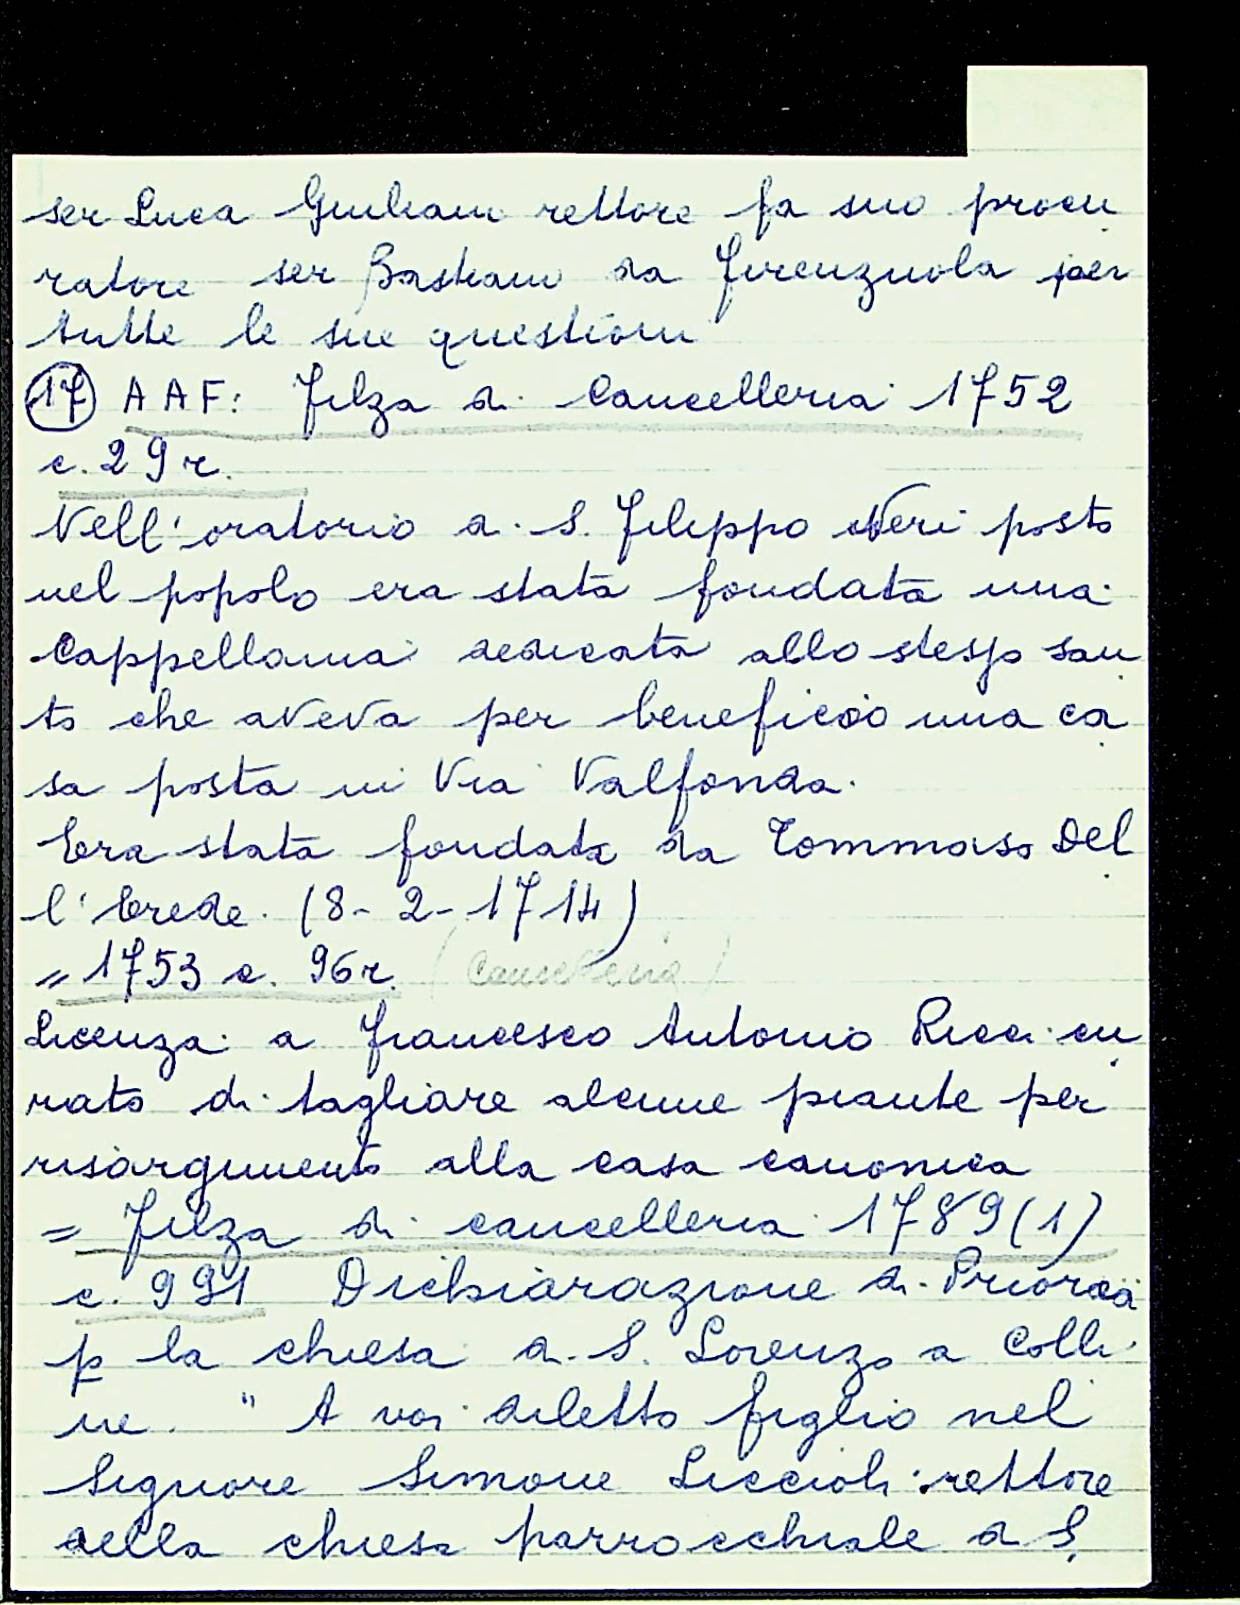 ser Luca Giuliani rettore fa suo procu
ratore ser Bastiano da Firenzuola per
tutte le sue questioni
17 AAF: Filza di Cancelleria 1752
c. 29 r.
Nell'oratorio di S. Filippo Neri posto
nel popolo era stata fondata una
Cappellania dedicata allo stesso san
to che aveva per beneficio una ca
sa posta in Via Valfonda.
Era stata fondata da Tommaso Del
l'Erede. (8-2-1714)
" 1753 c. 96r. (Cancelleria)
Licenza a Francesco Antonio Ricci cu
rato di tagliare alcune piante per
risarcimento alla casa canonica
= Filza di cancelleria 1789 (1)
c. 991 Dichiarazione di Prioria
p la chiesa di S. Lorenzo a Colli
ne. " A voi diletto figlio nel
Signore Simone Liccioli rettore
della chiesa parrocchiale di S.